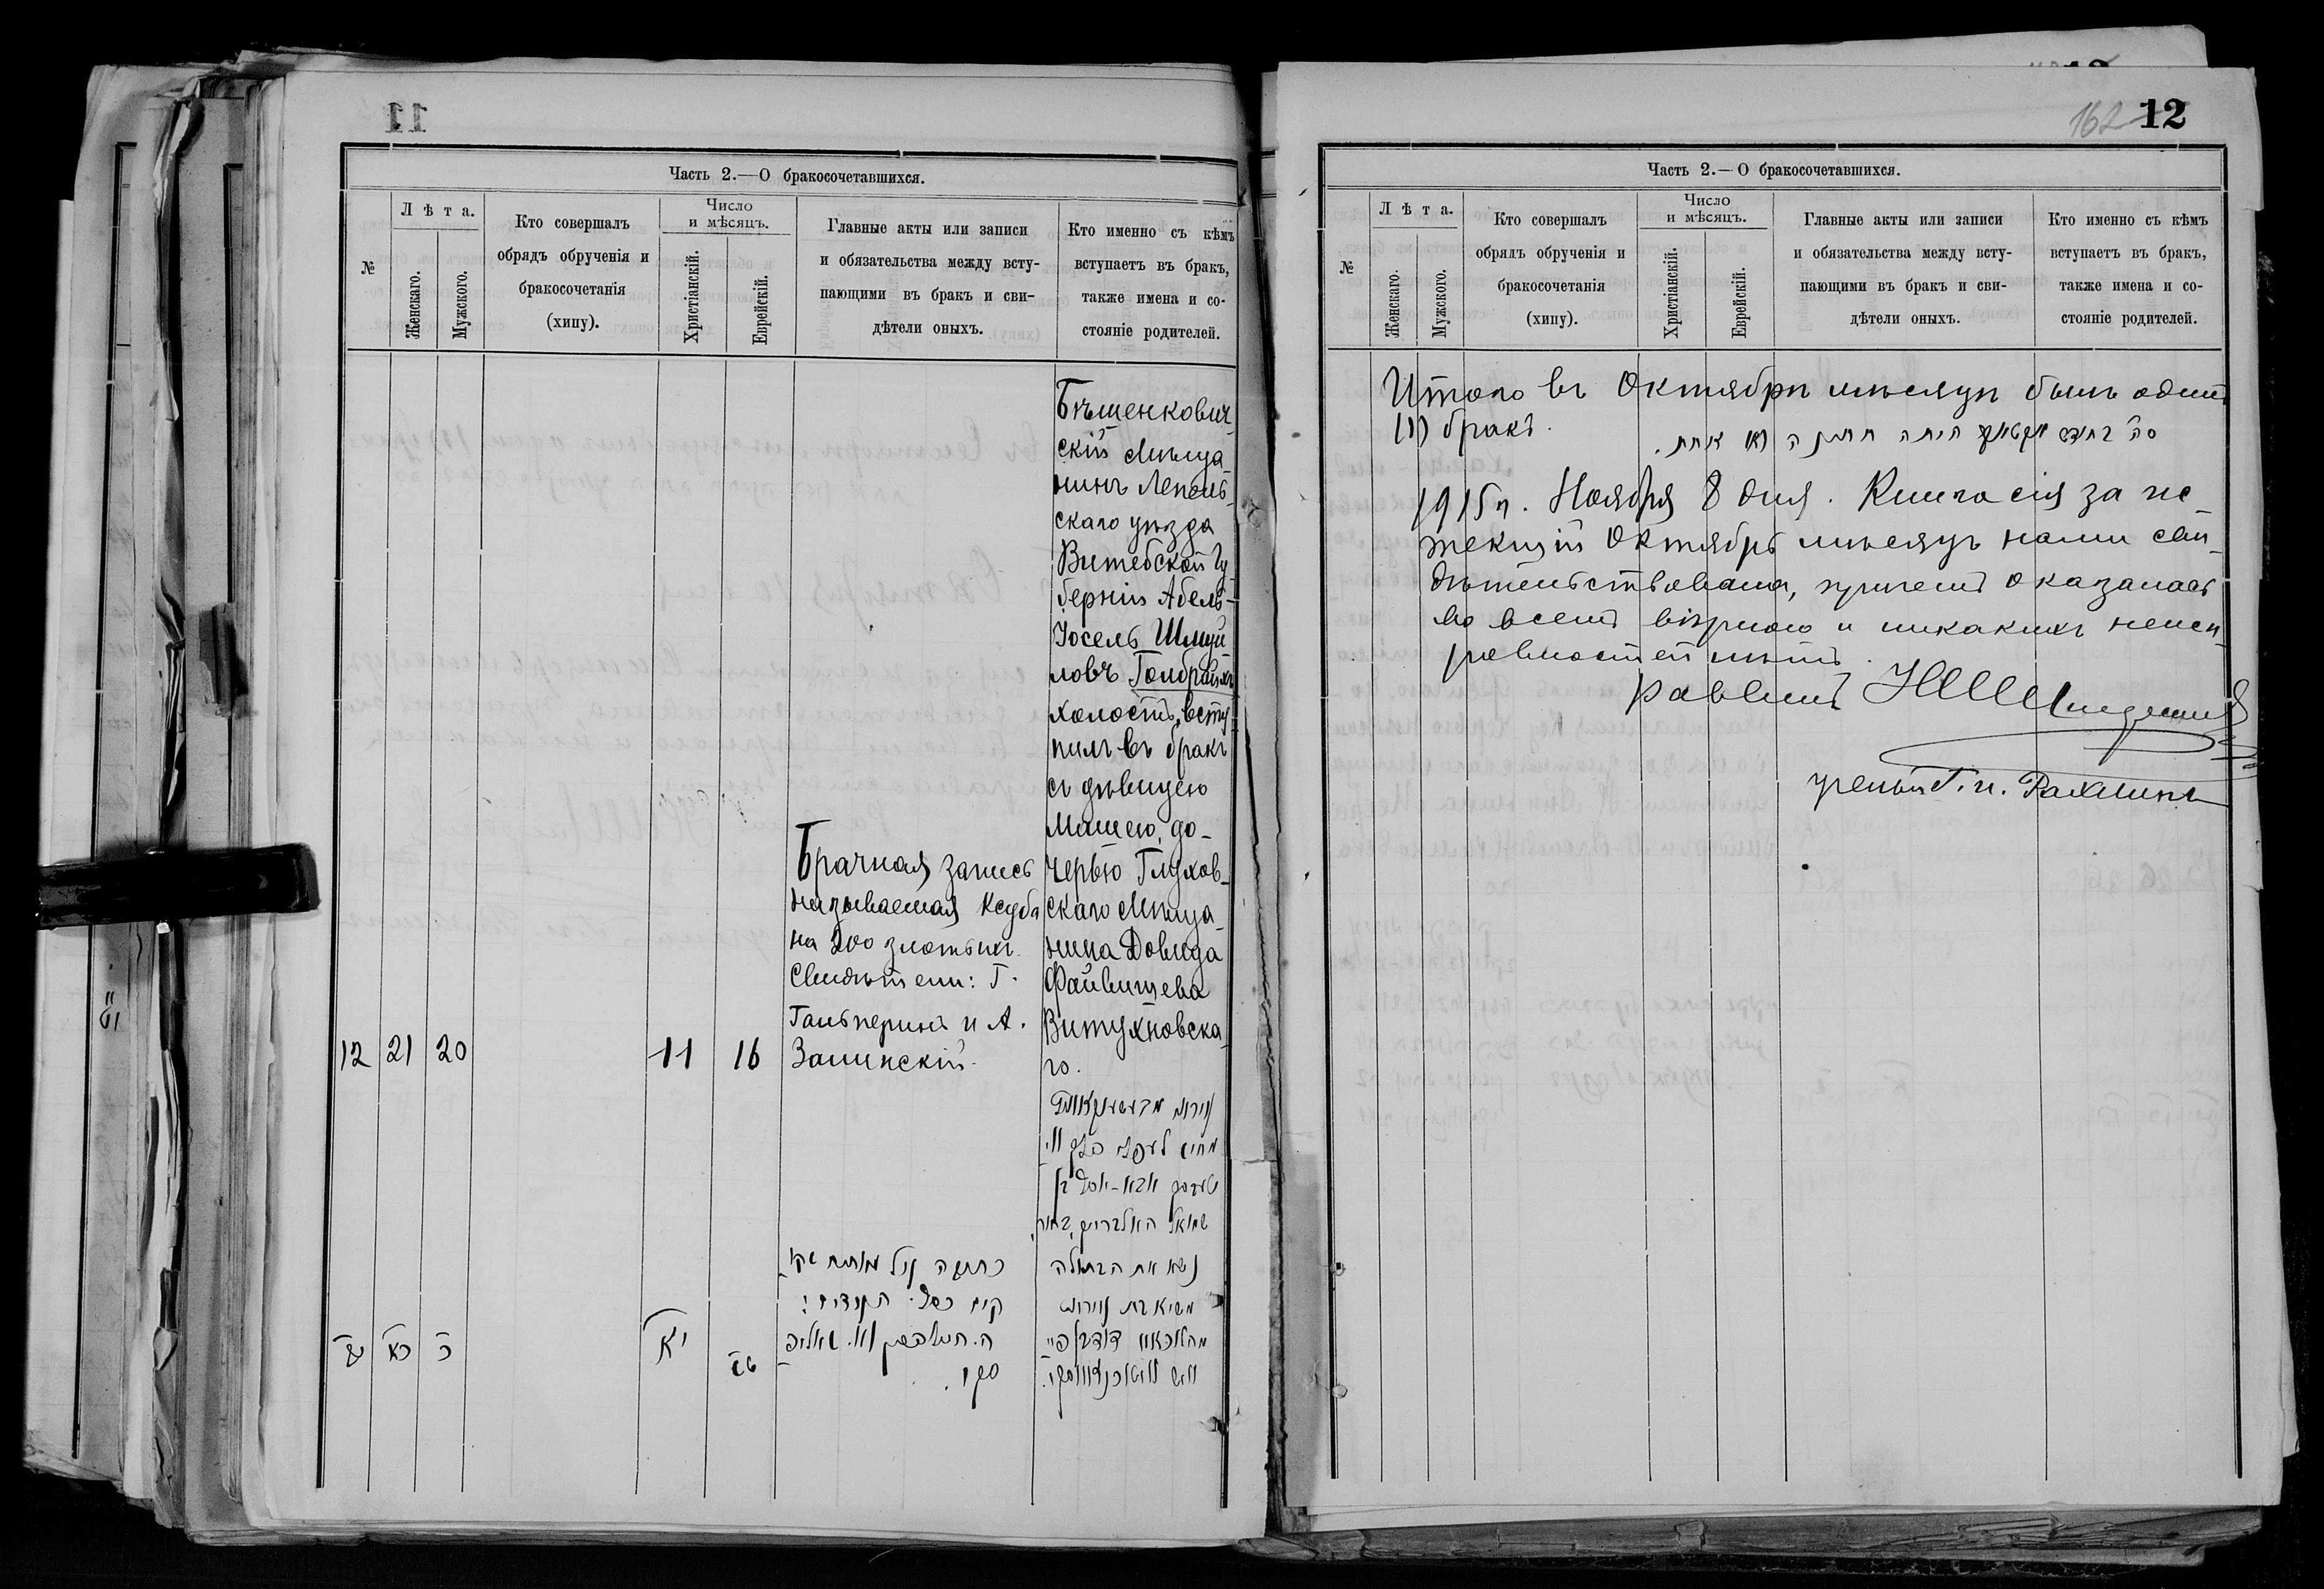 11
Часть 2.—О бракосочетавшихся.
№
Лѣта.
Женскаго.
Мужского.
Кто совершалъ
обрядъ обрученія и
бракосочетанія
(хипу).
Число
и мѣсяцъ.
Христіанскій.
Еврейскій.
Главные акты или записи
и обязательства между всту-
пающими въ бракъ и сви-
дѣтели оныхъ.
Кто именно съ кѣмъ
вступаетъ въ бракъ,
также имена и со-
стояніе родителей.
12
21
20
11
16
Брачная запись
называемая Ксуба
на 200 злотыхъ.
Свидѣтели: Г.
Гальперинъ и А.
Залинскій.
Бѣшенкович-
скій Мѣща-
нинъ Лепель-
скаго уѣзда
Витебской Гу-
берніи Абель-
Іосель Шмуй-
ловъ
холостъ, всту-
пилъ въ бракъ
съ дѣвицею
Машею, до-
черью Глухов-
скаго Мѣща-
нина Довида
Файвишева
Витухновска-
го.
יב
כא
כ
יא
נשא את הבתולה
162 12
Часть 2.—О бракосочетавшихся.
№
Лѣта.
Женскаго.
Мужского.
Кто совершалъ
обрядъ обрученія и
бракосочетанія
(хипу).
Число
и мѣсяцъ.
Христіанскій.
Еврейскій.
Главные акты или записи
и обязательства между всту-
пающими въ бракъ и сви-
дѣтели оныхъ.
Кто именно съ кѣмъ
вступаетъ въ бракъ,
также имена и со-
стояніе родителей.
Итого въ Октябрѣ мѣсяцѣ былъ одинъ
(1) бракъ.
סה״ בחודש אקטאבער היתה חתונה (א) אחת.
1915 г. Ноября 8 дня. Книга сія за ис-
текшій Октябрь мѣсяцъ нами сви-
дѣтельствована, причемъ оказалась
во всемъ вѣрною и никакихъ неисп-
равностей нѣтъ.
Раввинъ
ученый Г. и. Рахлинъ